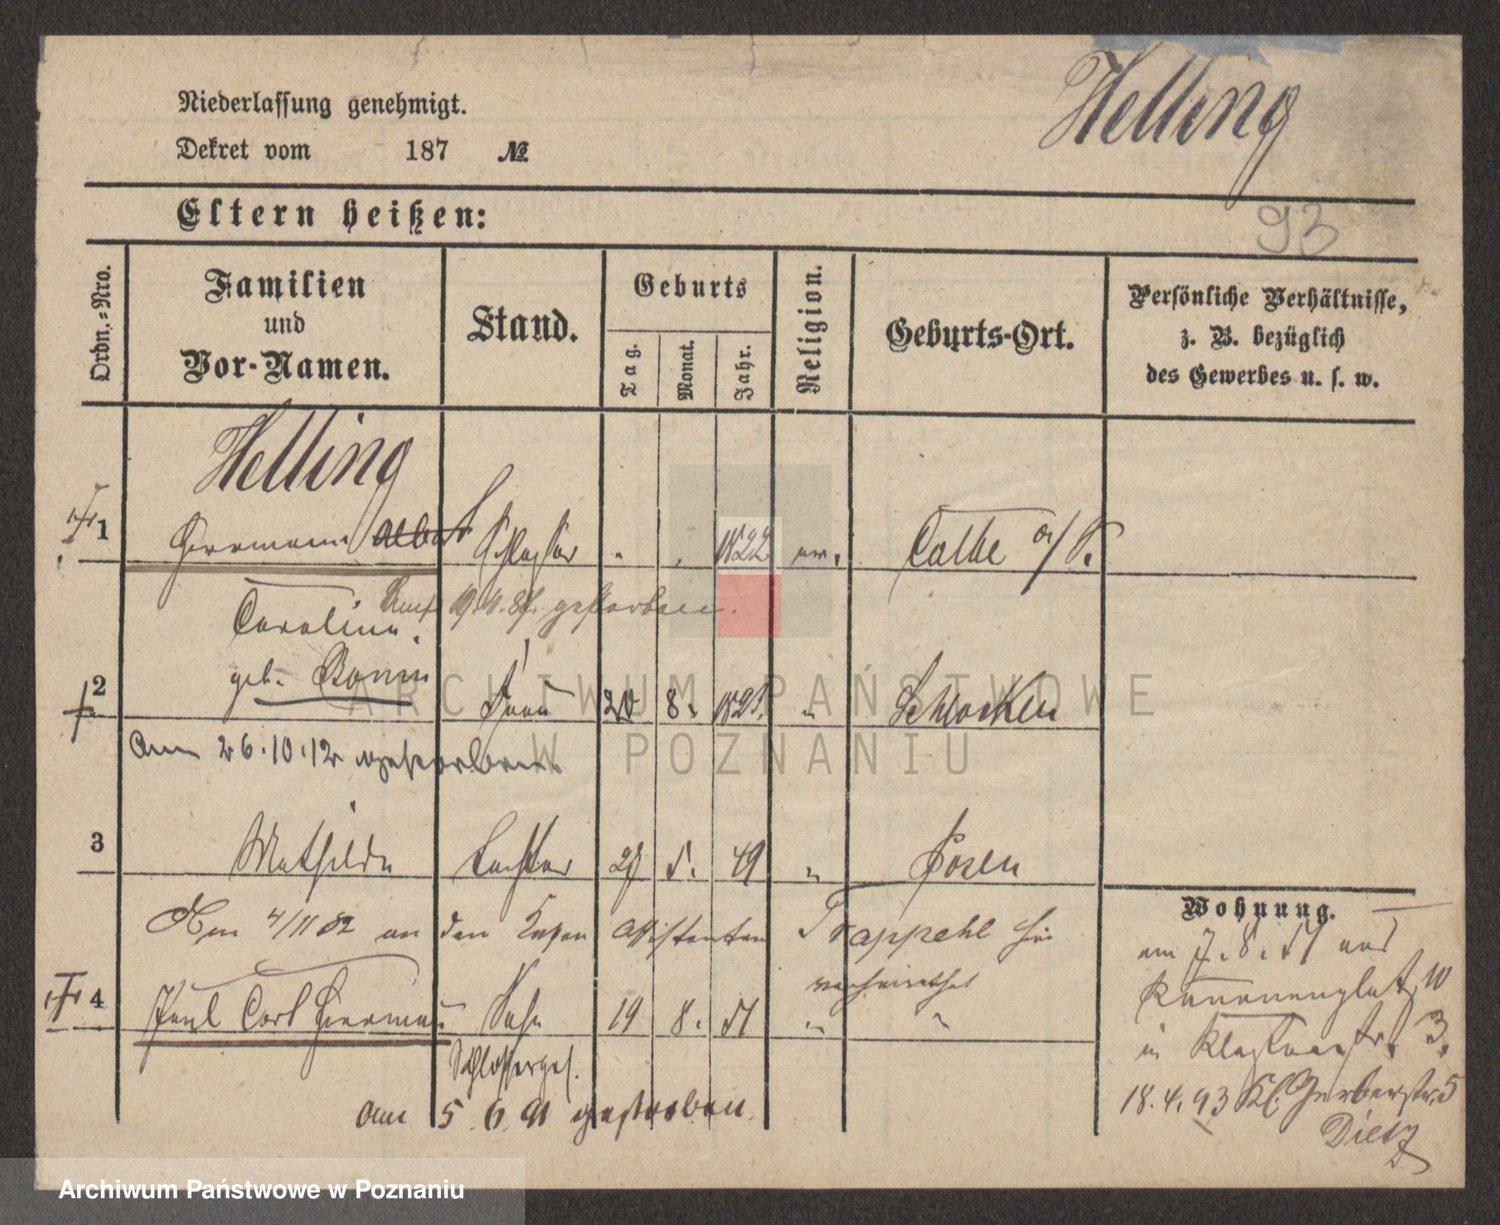 Helling
Niederlassung genehmigt.
Dekret vom 187 №
93
Eltern heißen:
Ordn.-Nro.
Familien
und
Vor-Namen.
Stand.
Geburts
Tag.
Monat.
Jahr.
Religion.
Geburts-Ort.
Persönliche Verhältnisse,
z. B. bezüglich
des Gewerbes u. s. w.
Helling
1 Hermann Albert Schlosser 1822 ev. Calbe a/S.
Caroline
am 19.4. gestorben.
geb. Bonin
2 Frau 20 8. Schlocken
Am 26.10.12 gestorben
3 Mathilde Tochter 27 5. 49 " Posen
Am 4/11 82 an den Assistenten Trappehl hier
verheirathet
4 Paul Carl Hermann Sohn 19 8. 51 " "
Schlosserges.
am 5.6.91 gestorben.
Wohnung.
am 7.8. aus
Kanonenplatz 10
in Klosterstr. 3.
18.4.93 Kl. Gerberstr. 5
Dietz
ARCHIWUM PAŃSTWOWE
W POZNANIU
Archiwum Państwowe w Poznaniu